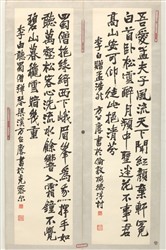 吾愛孟夫子風流天下聞紅顏棄軒冕
白首臥松雲醉月頻中聖迷花不事君
高山安可仰徒此揖清芬
李白贈孟浩然
蜀僧抱綠綺西下峨眉峰為我一揮手如
聽萬壑松客心洗流水餘響入霜鐘不覺
碧山暮秋雲暗幾重
李白聽蜀僧濬彈琴